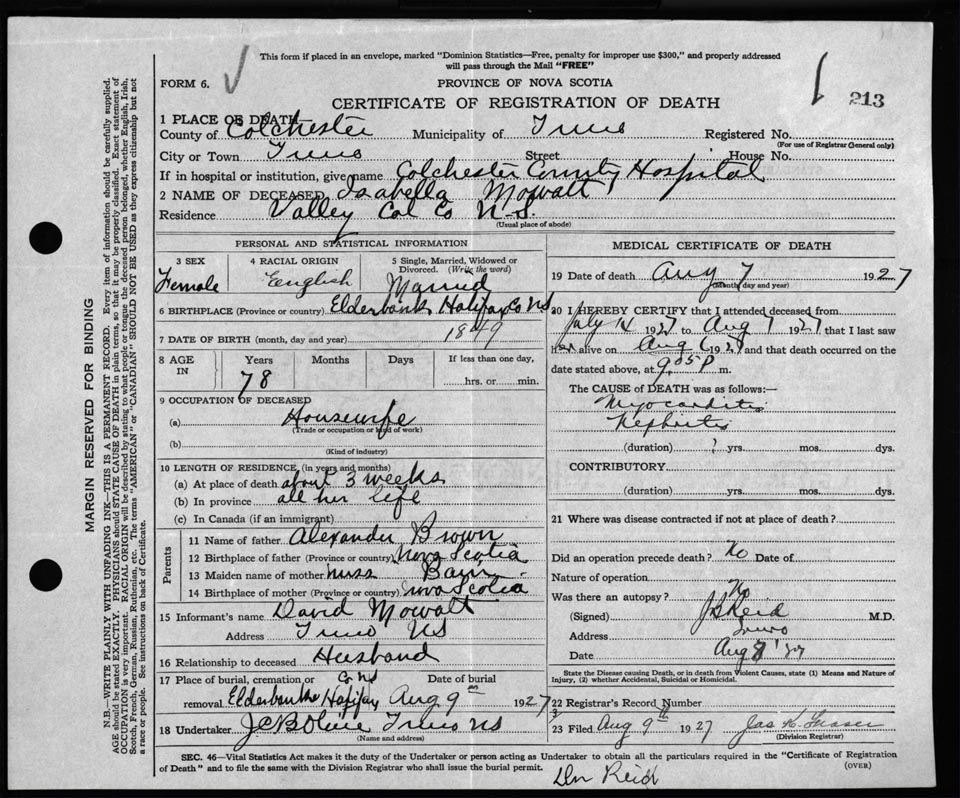 This form if placed in an envelope, marked "Dominion Statistics—Free, penalty for improper use $300," and properly addressed
will pass through the Mail "FREE"
FORM 6.
PROVINCE OF NOVA SCOTIA
213
CERTIFICATE OF REGISTRATION OF DEATH
1 PLACE OF DEATH
County of Colchester Municipality of Truro Registered No.
(For use of Registrar General only)
City or Town Truro Street House No.
If in hospital or institution, give name Colchester County Hospital
2 NAME OF DECEASED Isabella Mowatt
Residence Valley Col Co N.S.
(Usual place of abode)
PERSONAL AND STATISTICAL INFORMATION
3 SEX Female
4 RACIAL ORIGIN English
5 Single, Married, Widowed or Divorced. (Write the word) Married
6 BIRTHPLACE (Province or country) Elderbank Halifax Co NS
7 DATE OF BIRTH (month, day and year) 1849
8 AGE IN Years Months Days If less than one day,
78 hrs. or min.
9 OCCUPATION OF DECEASED
(a) Housewife
(Trade or occupation or kind of work)
(b)
(Kind of industry)
10 LENGTH OF RESIDENCE, (in years and months)
(a) At place of death about 3 weeks
(b) In province all her life
(c) In Canada (if an immigrant)
Parents
11 Name of father Alexander Brown
12 Birthplace of father (Province or country) Nova Scotia
13 Maiden name of mother Miss
14 Birthplace of mother (Province or country) Nova Scotia
15 Informant's name David Mowatt
Address Truro NS
16 Relationship to deceased Husband
17 Place of burial, cremation or removal Date of burial
Co NS
Elderbank Halifax Aug 9th 1927
18 Undertaker Truro NS
(Name and address)
MEDICAL CERTIFICATE OF DEATH
19 Date of death Aug 7 1927
(Month, day and year)
20 I HEREBY CERTIFY that I attended deceased from
July 14 1927 to Aug 7 1927 that I last saw
her alive on Aug 6 1927 and that death occurred on the
date stated above, at 9.05 P m.
The CAUSE of DEATH was as follows:—
Myocarditis
Nephritis
(duration) ? yrs. mos. dys.
CONTRIBUTORY
(duration) yrs. mos. dys.
21 Where was disease contracted if not at place of death?
Did an operation precede death? No Date of
Nature of operation
Was there an autopsy? No
(Signed) Reid M.D.
Address Truro
Date Aug 8 '27
State the Disease causing Death, or in death from Violent Causes, state (1) Means and Nature of
Injury, (2) whether Accidental, Suicidal or Homicidal.
22 Registrar's Record Number
23 Filed Aug 9th 1927 Jas K. Fraser
(Division Registrar)
SEC. 46—Vital Statistics Act makes it the duty of the Undertaker or person acting as Undertaker to obtain all the particulars required in the "Certificate of Registration
of Death" and to file the same with the Division Registrar who shall issue the burial permit. (OVER)
Dr Reid
MARGIN RESERVED FOR BINDING
N.B.—WRITE PLAINLY WITH UNFADING INK—THIS IS A PERMANENT RECORD. Every item of information should be carefully supplied.
AGE should be stated EXACTLY. PHYSICIANS should STATE CAUSE OF DEATH in plain terms, so that it may be properly classified. Exact statement of
OCCUPATION is very important. RACIAL ORIGIN will be described by stating to what people or tongue the deceased person belonged, whether English, Irish,
Scotch, French, German, Russian, Ruthenian, etc. The terms "AMERICAN" or "CANADIAN" SHOULD NOT BE USED as they express citizenship but not
a race or people. See instructions on back of Certificate.